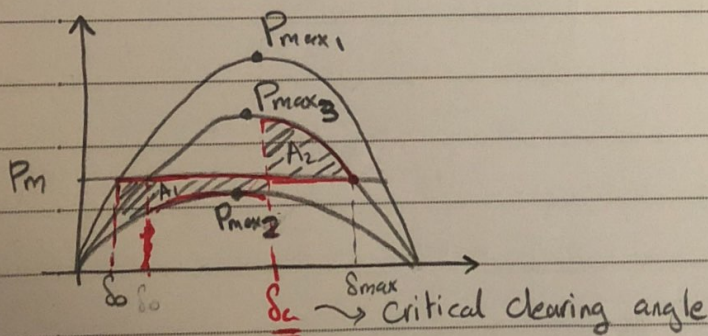 Pmax₁
Pmax₃
A₂
Pm
A₁
Pmax₂
δ₀ δ₀ δc → critical clearing angle
δmax